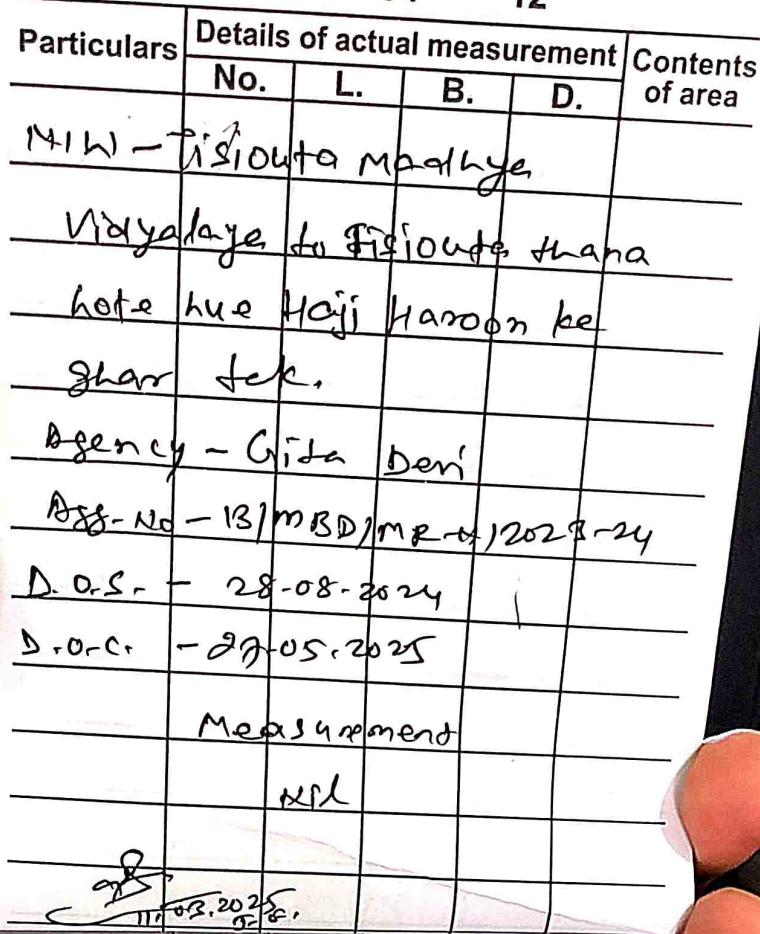 12
Particulars Details of actual measurement Contents of area
No. L. B. D.
N/W - Tisiouta Madhya
Vidyalaya to Tisiouta thana
hote hue Haji Haroon ke
ghar tek.
Agency - Gita Devi
Agg-No - 13/MBD/MR-N/2023-24
D.O.S. - 28-08-2024
D.O.C. - 27-05-2025
Measurement
Nil
11.03.2025